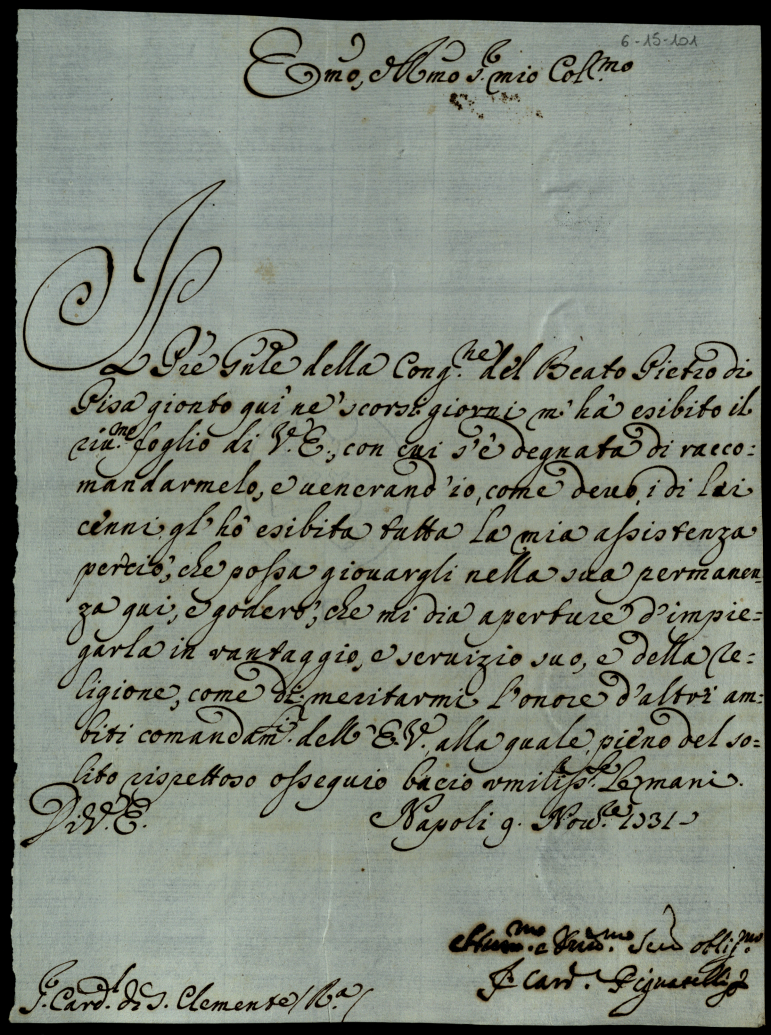 6-15-101
Em̃o, e Rmo Sr. mio Col.mo
Il Prē Gnl̃e della Cong.ne del Beato Pietro di
Pisa gionto quì ne' scorsi giorni m'hà esibito il
riu.mo foglio di V. E., con cui s'è degnata di racco=
mandarmelo, e uenerand'io, come deuo, i di lei
cenni gl'hò esibita tutta la mia assistenza
perciò, che possa giouargli nella sua permanen=
za qui, e goderò, che mi dia aperture d'impie=
garla in vantaggio, e seruizio suo, e della Re=
ligione, come di meritarmi l'onore d'altri am=
biti comandam.ti dell'E. V., alla quale, pieno del so=
lito rispettoso ossequio bacio vmiliss.te le mani.
Di V. E. Napoli 9. Nou.re 1731
Seru oblig.mo
F. Card. Pignatelli
Sr. Card.l di S. Clemente / R.a /